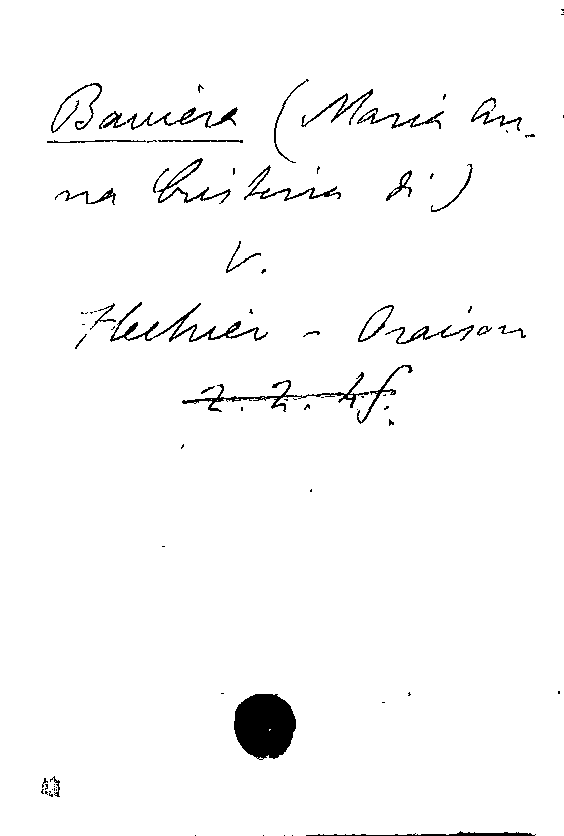 Baviera (Maria An-
na Cristina di)
V.
Flechier - Oraison
2. 2. 45.